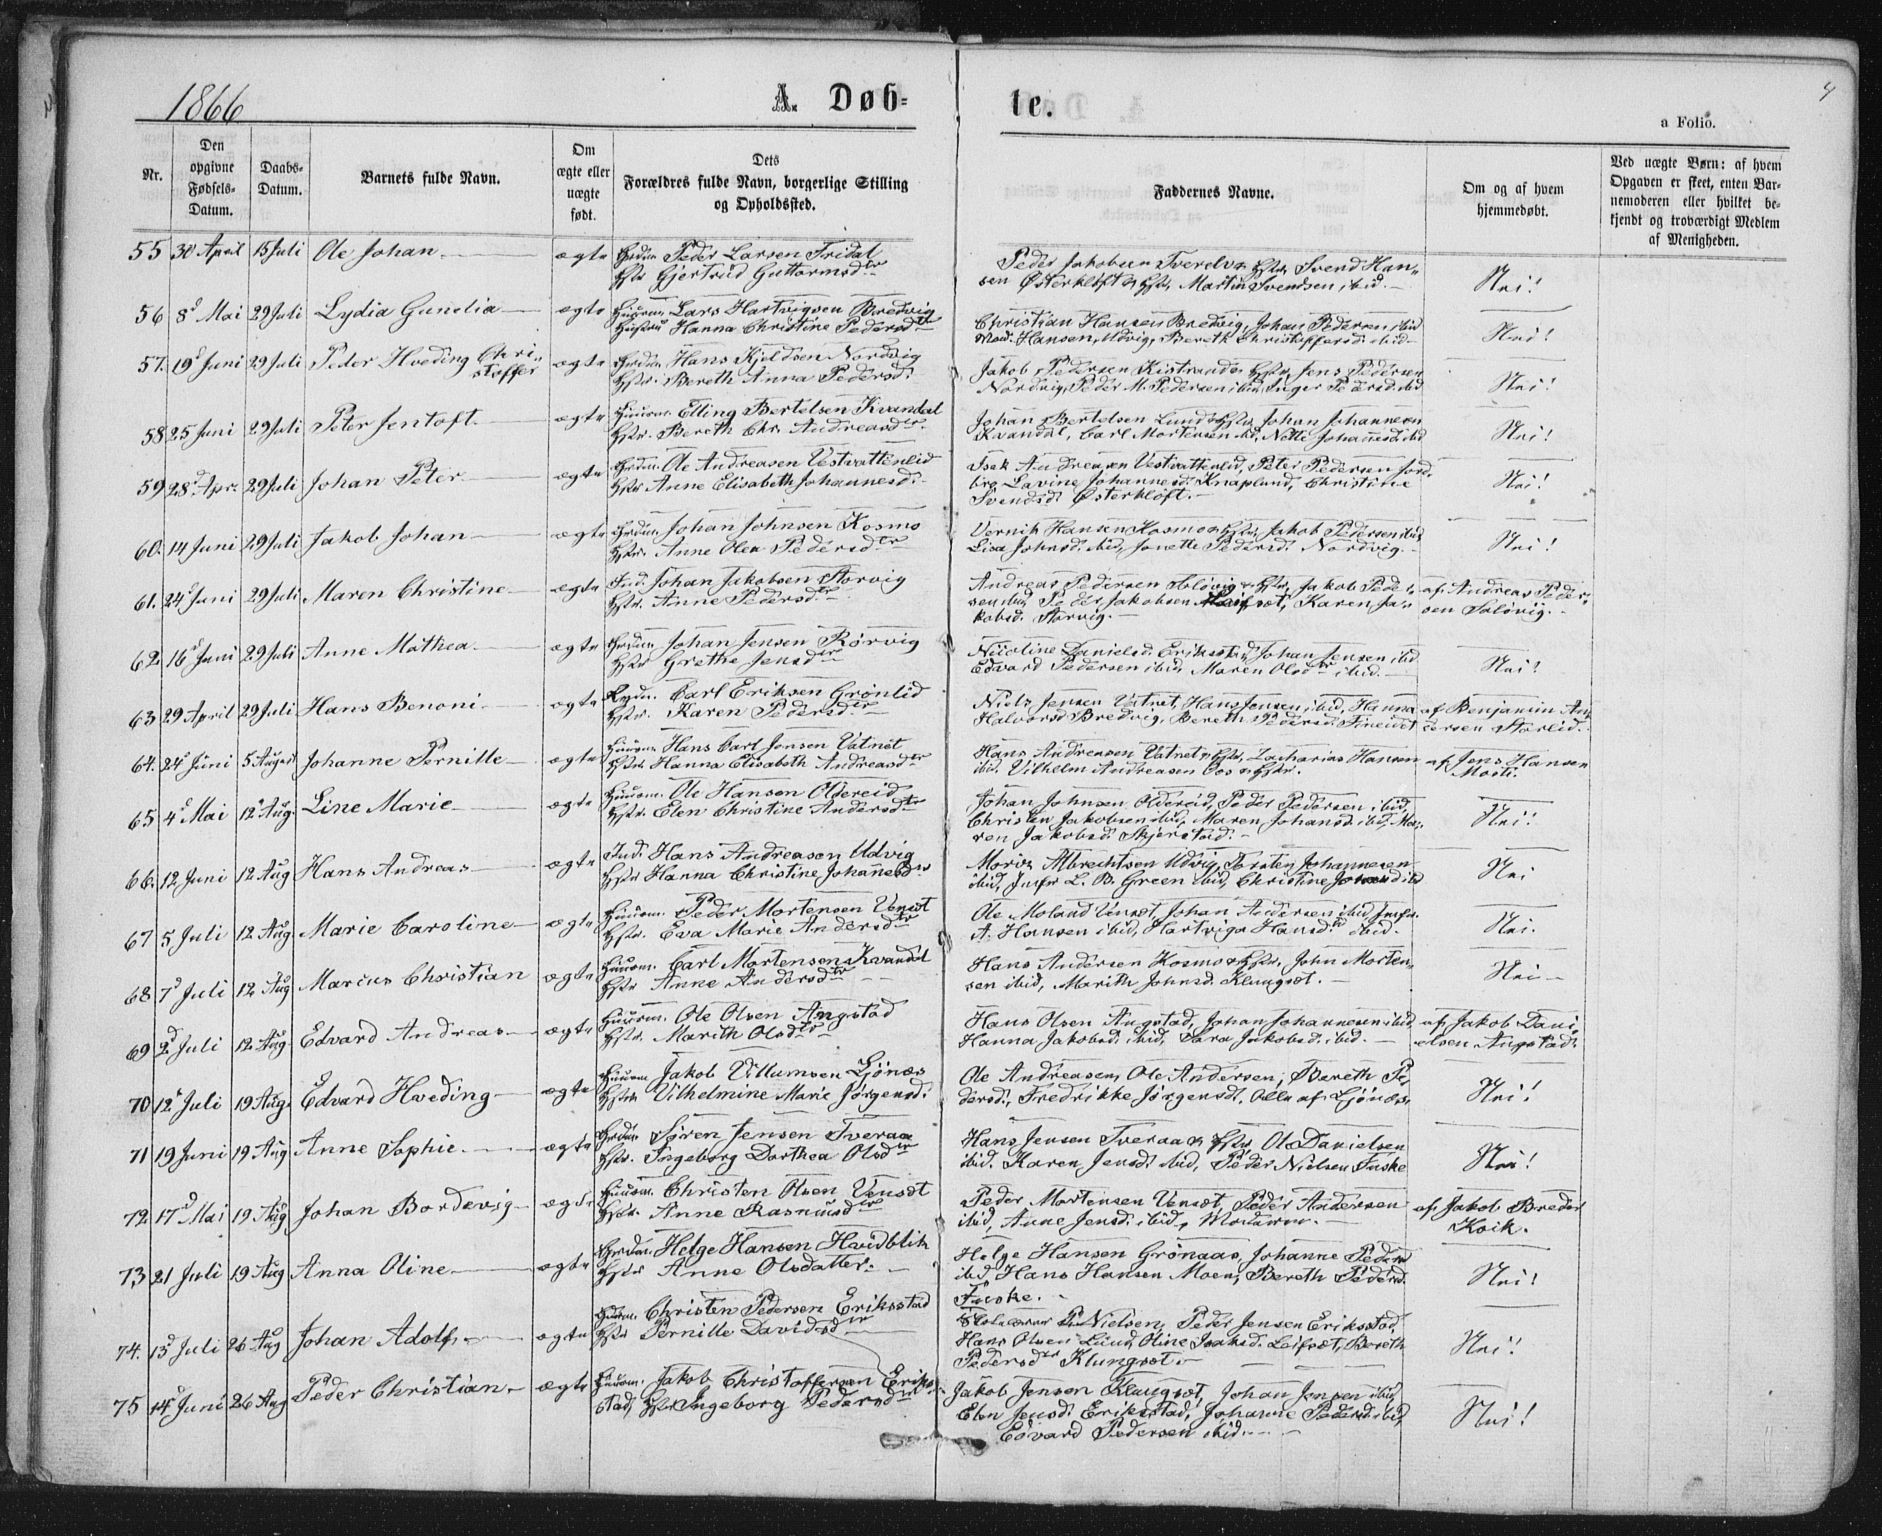 1866
A. Døb-
te.
4
a Folio.
Nr.
Den opgivne Fødsels-Datum.
Daabs-Datum.
Barnets fulde Navn.
Om ægte eller uægte født.
Dets Forældres fulde Navn, borgerlige Stilling og Opholdssted.
Faddernes Navne.
Om og af hvem hjemmedøbt.
Ved uægte Børn: af hvem Opgaven er skeet, enten Barnemoderen eller hvilket bekjendt og troværdigt Medlem af Menigheden.
55 30 April 15 Juli Ole Johan ægte Peder Larsen Fridal
Hstr Gjertrud Guttormsdtr
Peder Jakobsen Tverelv & Hstr, Svend Han-
sen Østerkløft & Hstr, Martin Svendsen ibid.
Nei!
56 8d Mai 29 Juli Lydia Gunelia ægte Huusm. Lars Hartvigsen Bredvig
Hustru Hanna Christine Pedersdtr
Christian Hansen Bredvig, Johan Pedersen ibid
Mad. Hansen, Udvig, Bereth Christoffersd. ibid
Nei!
57. 19d Juni 29 Juli Peder Hveding Chri-
stoffer
ægte Hans Kjeldsen Nordvig
Hstr. Bereth Anna Pedersd.
Jakob Pedersen Kistrand & Hstr, Jens Pedersen
Nordvig, Peder M. Pedersen ibid, Inger Pedersd. ibid
Nei!
58 25 Juni 29 Juli Peter Jentoft. ægte Huusm. Elling Bertelsen Kvandal
Hstr. Bereth Chr. Andreasdtr.
Johan Bertelsen Lund & Hstr, Johan Johannesen
Kvandal, Carl Mortensen ibid, Nette Johannesd. ibid
Nei!
59 28d Apr. 29 Juli Johan Peter ægte Ole Andreasen Vestvattenlid
Hstr Anne Elisabeth Johannesd.
Isak Andreasen Vestvattenlid, Peter Pedersen Jord-
bro Lavine Johannesd. Knaplund, Christine
Svendsd. Østerkløft.
Nei!
60. 14 Juni 29 Juli Jakob Johan ægte Johan Johnsen Kosmo
Hstr. Anne Olea Pedersdtr
Vernik Hansen Kosmo & Hstr, Jakob Pedersen ibid
Lisa Johnsd. ibid, Jonette Pedersd. Nordvig.
Nei!
61. 24d Juni 29 Juli Maren Christine ægte Ind. Johan Jakobsen Storvig
Hstr. Anne Pedersdtr.
Andreas Pedersen Soløvig & Hstr, Jakob Peder-
sen ibid, Peder Jakobsen Leifset, Karen Ja-
kobsd. Storvig.
af Andreas Peder-
sen Soløvig.
62. 16d Juni 29 Juli Anne Mathea ægte Johan Jensen Rørvig
Hstr Grethe Jensdtr
Nicoline Danielsd. Eriksstd, Johan Jensen ibid
Edvard Pedersen ibid, Maren Olsdtr ibid.
Nei!
63 29 April 29 Juli Hans Benoni ægte Carl Eriksen Grønlid
Hstr. Karen Pedersdtr.
Niels Jensen Vatnet, Hans Jensen ibid, Hanna
Halvorsd Bredvig, Bereth Pedersd. Fineidet
af Benjamin An-
dersen Storlid.
64. 24d Juni 5 August Johanne Pernille ægte Huusm Hans Carl Jonsen Vatnet
Hstr. Hanna Elisabeth Andreasdtr
Hans Andreasen Vatnet & Hstr, Zacharias Hansen
ibid. Vilhelm Andreasen Oos & Hstr.
af Jens Hansen
Mosti.
65 4d Mai 12 Aug. Line Marie ægte Huusm. Ole Hansen Oldereid
Hstr. Elen Christine Andersdtr
Johan Johnsen Oldereid, Peder Pedersen ibid,
Christen Jakobsen ibid, Maren Johansd. ibid, Ma-
ren Jakobsd. Skjerstad.
Nei!
66. 12 Juni 12 Aug Hans Andreas ægte Ind. Hans Andreasen Udvig
Hstr Hanna Christine Johannesd
Moris Albrechtsen Udvig, Torsten Johannesen
ibid, Jmfr L. B. Green ibid, Christine ibid
Nei
67 5 Juli 12 Aug Marie Caroline ægte Huusm. Peder Mortensen Venset
Hstr. Eva Marie Andersdtr
Ole Moland Venset, Johan Andersen ibid Jmfr.
A. Hansen ibid, Hartviga Hansd. ibid.
Nei.
68 7d Juli 12 Aug Marius Christian ægte Huusm. Carl Mortensen Kvandal
Hstr. Anne Andersdtr
Hans Andersen Kosmo & Hstr, John Morten-
sen ibid, Marith Johnsd. Klungset.
Nei
69 2d Juli 12 Aug Edvard Andreas ægte Huusm. Ole Olsen Angstad
Hstr. Marith Olsdtr
Hans Olsen Angstad, Johan Johannesen ibid,
Hanna Jakobsd. ibid, Sara Jakobsd. ibid.
af Jakob Dani-
elsen Angstad.
70 12d Juli 19 Aug Edvard Hveding ægte Huusm Jakob Villumsen Ljønes
Hstr. Vilhelmine Marie Jørgensd.
Ole Andreasen, Ole Andersen, Bereth Pe-
dersd, Fredrikke Jørgensd. Alle af Ljønes.
Nei!
71 19 Juni 19 Aug Anne Sophie. ægte Søren Jensen Tveraa
Hstr. Ingeborg Dorthea Olsdtr
Hans Jensen Tveraa & Hstr Ole Danielsen
ibid. Karen Jensd. ibid, Peder Nielsen Fuske
Nei!
72 17d Mai 19 Aug Johan Bordevig ægte Huusm. Christen Olsen Venset
Hstr. Anne Rasmusdtr
Peder Mortensen Venset, Peder Andersen
ibid, Anne Jensd. ibid, Moderen.
af Jakob Breder
Kvik.
73 21 Juli 19 Aug Anna Oline ægte Helge Hansen Hvidblik
Hstr Anne Olsdatter.
Helge Hansen Grønaas, Johanne Pedersd
ibid, Hans Hansen Moen, Bereth Pedersd
Fuske.
Nei!
74. 13d Juli 26 Aug Johan Adolf ægte Christen Pedersen Eriksstad
Hstr Pernille Davidsdtr
Nielsen, Peder Jensen Eriksstad,
Hans Olsen Lund, Oline Isaksd. Leifset, Bereth
Pedersdtr Klungset.
Nei!
75 14d Juni 26 Aug Peder Christian ægte Huusm. Jakob Christoffersen Eriks-
stad, Hstr Ingeborg Pedersdtr
Jakob Jensen Klungset, Johan Jensen ibid,
Elen Jensd. Eriksstad, Johanne Pedersd. ibid,
Edvard Pedersen ibid.
Nei!